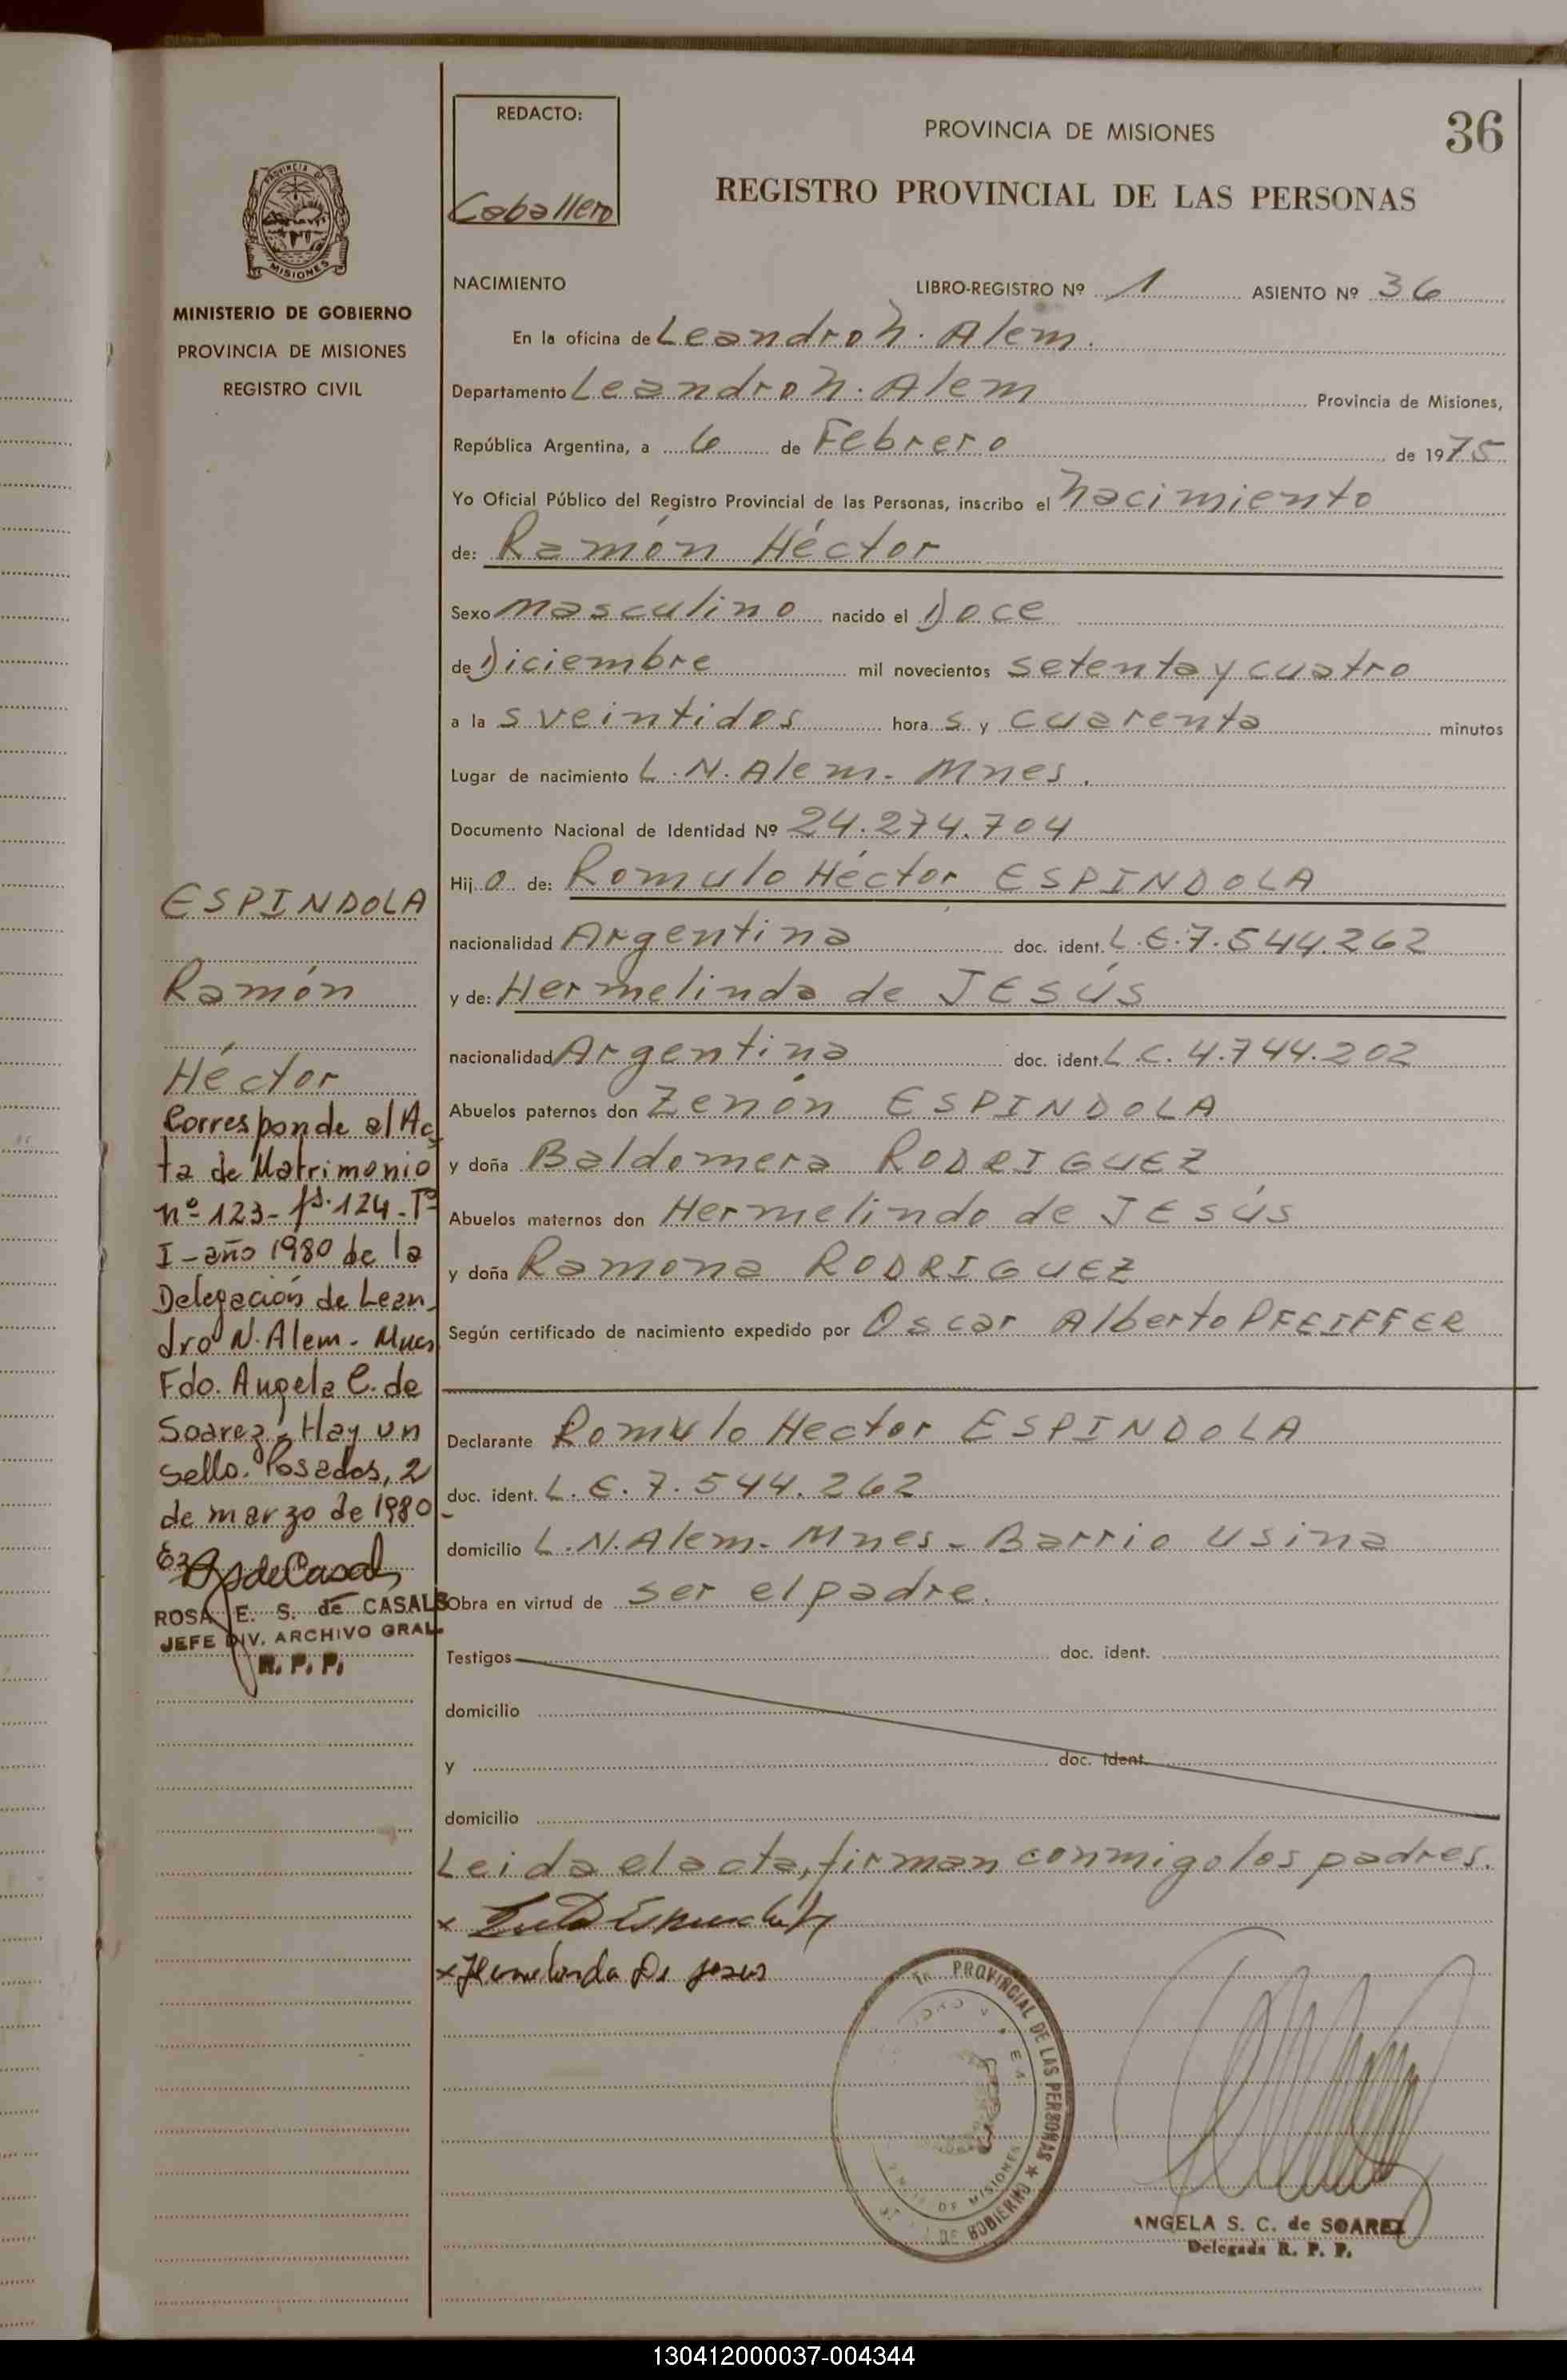 REDACTO:
Caballero
PROVINCIA DE MISIONES
36
REGISTRO PROVINCIAL DE LAS PERSONAS
PROVINCIA
MISIONES
MINISTERIO DE GOBIERNO
PROVINCIA DE MISIONES
REGISTRO CIVIL
NACIMIENTO
LIBRO-REGISTRO Nº 1 ASIENTO Nº 36
En la oficina de Leandro N. Alem.
Departamento Leandro N. Alem Provincia de Misiones,
República Argentina, a 6 de Febrero de 1975
Yo Oficial Público del Registro Provincial de las Personas, inscribo el nacimiento
de: Ramón Héctor
Sexo masculino nacido el Doce
de Diciembre mil novecientos setenta y cuatro
a la s veintidos hora s y cuarenta minutos
Lugar de nacimiento L.N. Alem - Mnes.
Documento Nacional de Identidad Nº 24.274.704
Hij o de: Romulo Héctor ESPINDOLA
nacionalidad Argentina doc. ident. L.E. 7.544.262
y de: Hermelinda de JESÚS
nacionalidad Argentina doc. ident. L.C. 4.744.202
Abuelos paternos don Zenón ESPINDOLA
y doña Baldomera RODRIGUEZ
Abuelos maternos don Hermelindo de JESÚS
y doña Ramona RODRIGUEZ
Según certificado de nacimiento expedido por Oscar Alberto PFEIFFER
Declarante Romulo Hector ESPINDOLA
doc. ident. L.E. 7.544.262
domicilio L.N. Alem - Mnes - Barrio Usina
Obra en virtud de ser el padre.
Testigos doc. ident.
domicilio
y doc. ident.
domicilio
Leida el acta, firman conmigo los padres.
x
x Hermelinda De Jesus
PROVINCIAL DE LAS PERSONAS
DE GOBIERNO
DE MISIONES
ANGELA S. C. de SOAREZ
Delegada R. P. P.
ESPINDOLA
Ramón
Héctor
Corresponde al Ac
ta de Matrimonio
nº 123 - fs. 124 - Tº
I - año 1980 de la
Delegación de Lean
dro N. Alem - Mnes
Fdo. Angela C. de
Soarez - Hay un
sello. Posadas, 2
de marzo de 1980
ROSA E. S. de CASALS
JEFE DIV. ARCHIVO GRAL.
R. P. P.
130412000037-004344